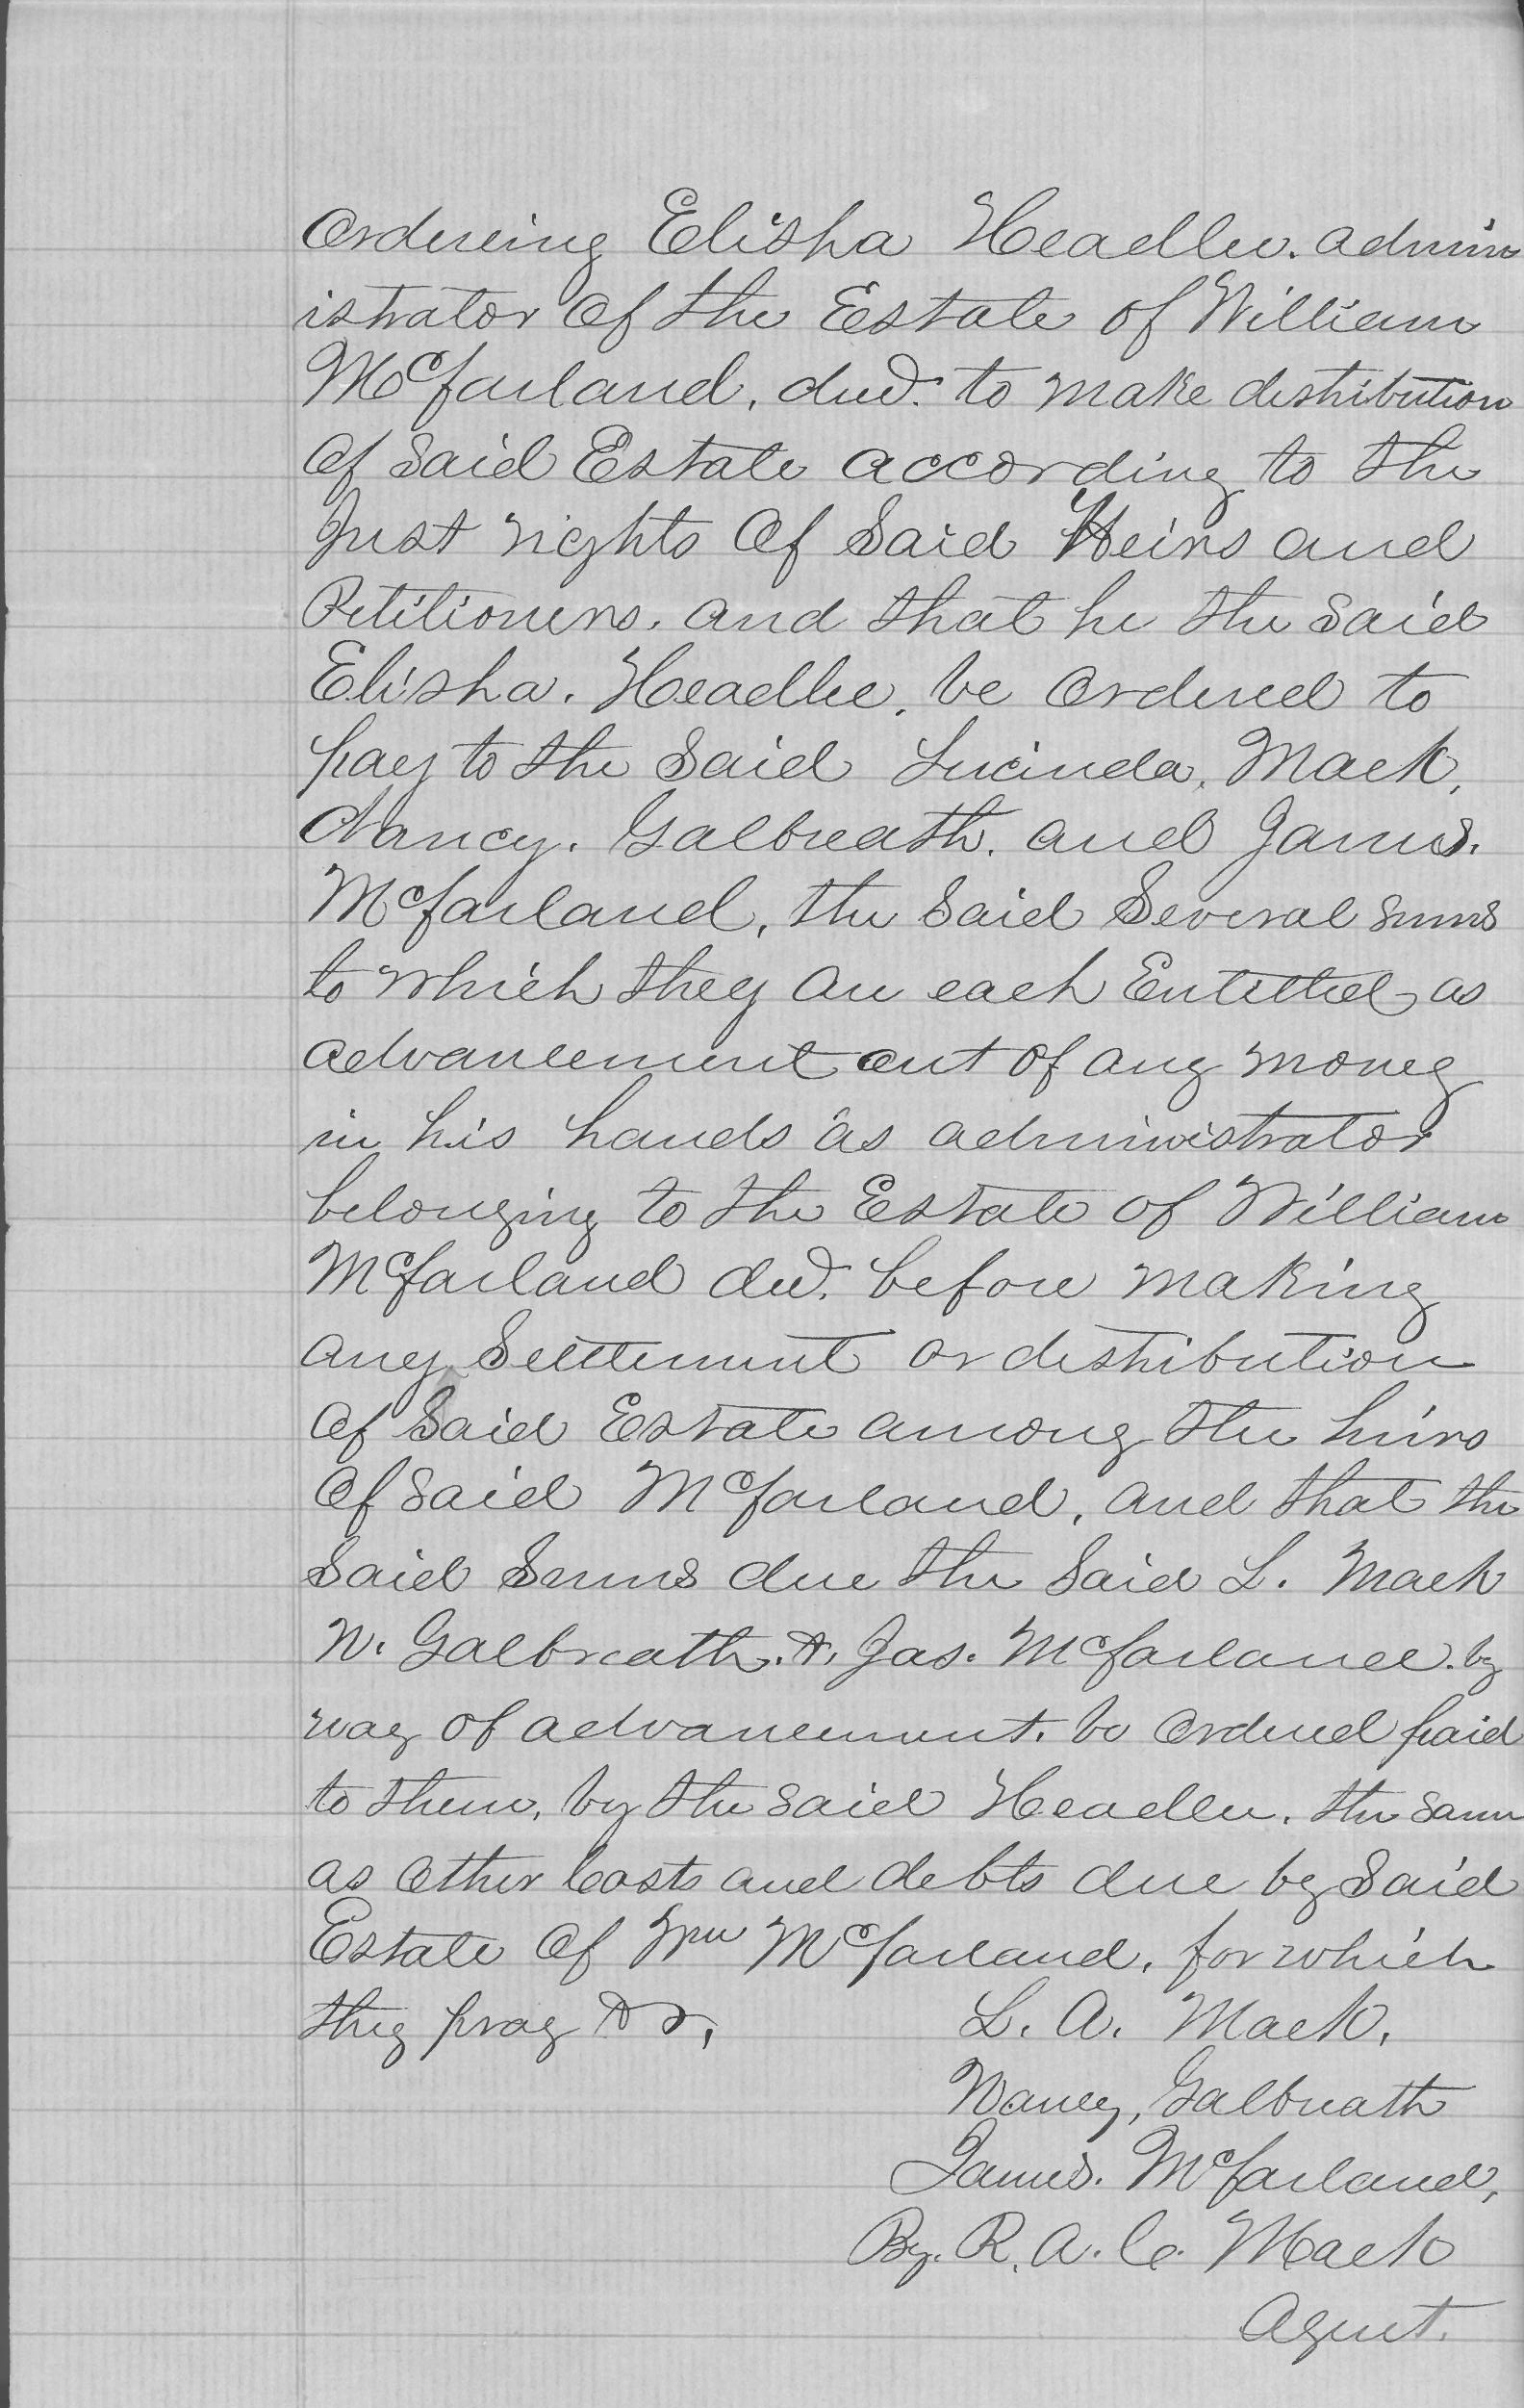 Ordering Elisha Headlee. admin
istrator of the Estate of William
McFarland, decd. to make distribution
of said Estate according to the
Just rights of said Heirs and
Petitioners. and that he the said
Elisha. Headlee, be ordered to
pay to the said Lucinda, Mack,
Nancy. Galbreath. and James.
McFarland, the said Several sums
to which they are each Entitled as
advancement out of any money
in his hands as administrator
belonging to the Estate of William
McFarland decd. before making
any Settlement or distribution
of said Estate among the heirs
of said McFarland, and that the
said Sums due the said L. Mack
N. Galbreath. &, Jas. McFarland. by
way of advancement. be ordered paid
to them, by the said Headlee, the same
as other Costs and debts due by said
Estate of Wm McFarland, for which
they pray &c,
L. A. Mack,
Nancy, Galbreath
James. McFarland,
By. R. A. C. Mack
Agent.